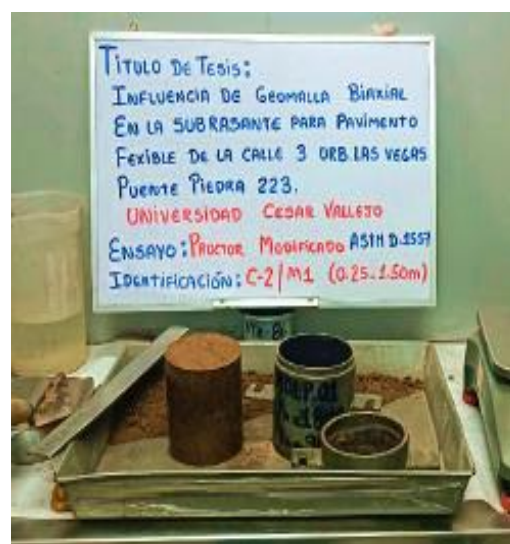 TITULO DE TESIS:
INFLUENCIA DE GEOMALLA BIAXIAL
EN LA SUBRASANTE PARA PAVIMENTO
FEXIBLE DE LA CALLE 3 URB. LAS VEGAS
PUENTE PIEDRA 223.
UNIVERSIDAD CESAR VALLEJO
ENSAYO: PROCTOR MODIFICADO ASTM D-1557
IDENTIFICACIÓN: C-2/M1 (0.25-1.50m)